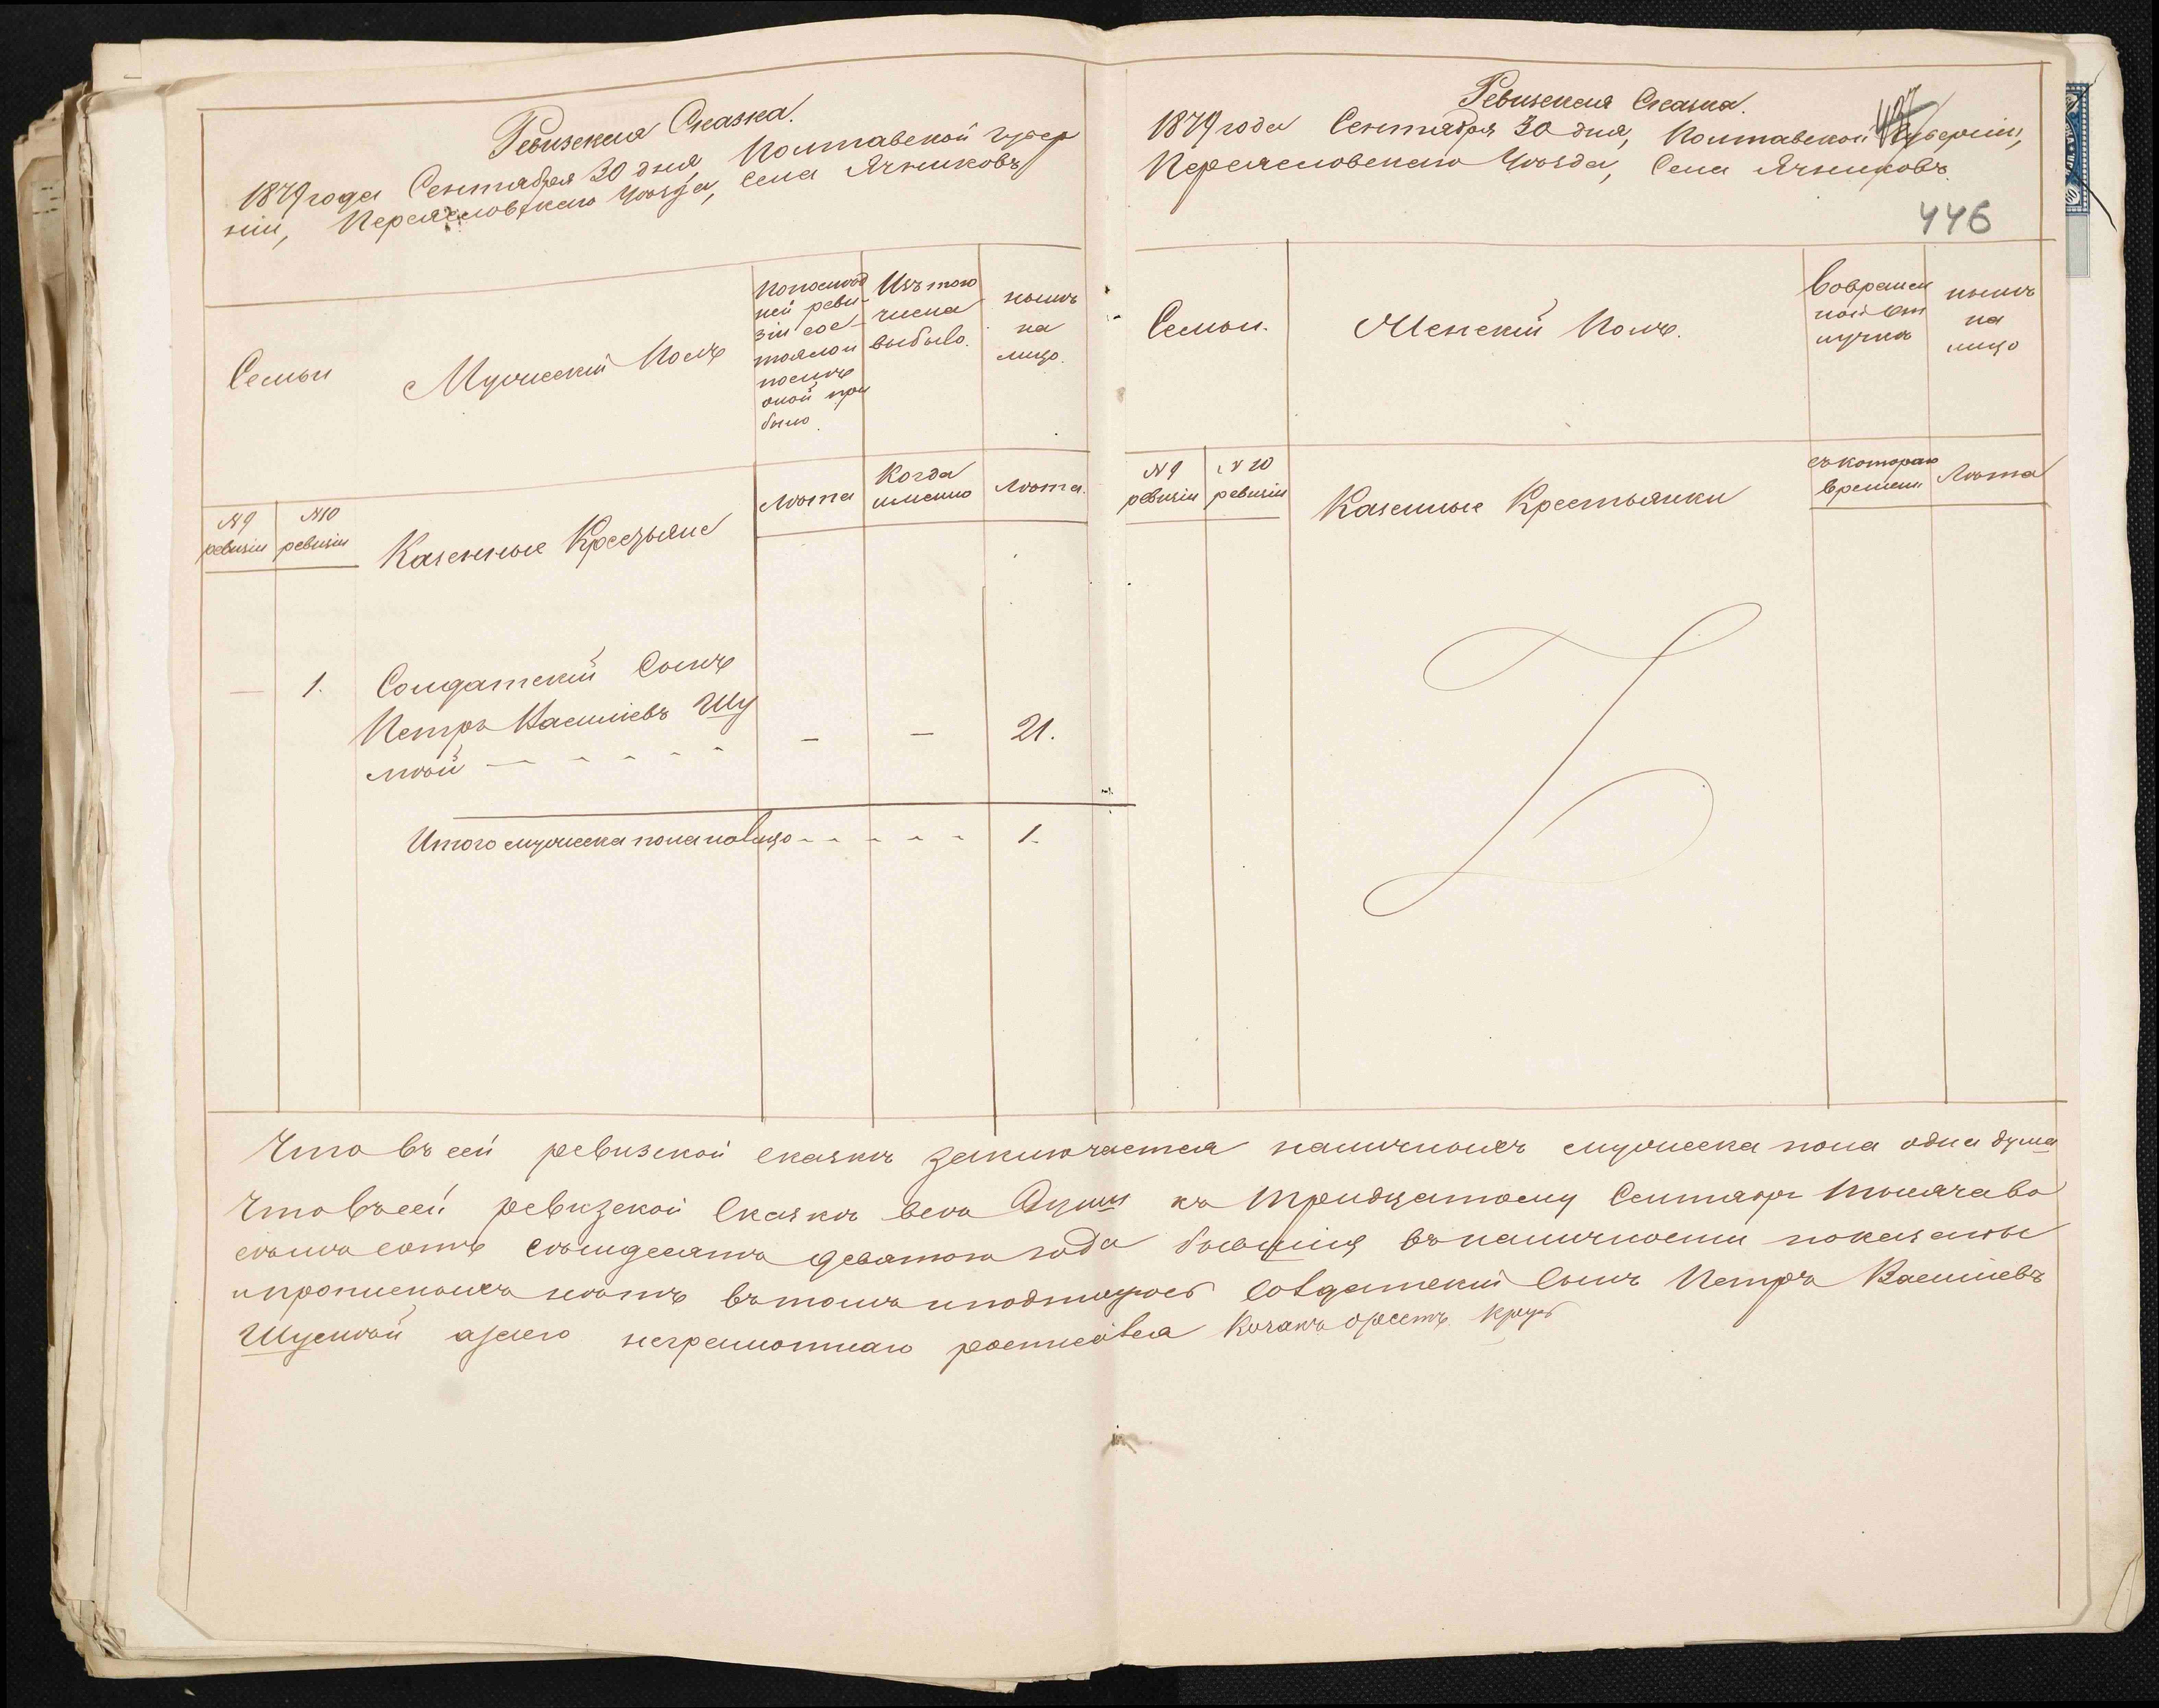 Ревизская Сказка.
1879 года Сентября 30 дня, Полтавской губер
нии, Переяславскаго Уѣзда, села Ячниковъ
Семьи
Мужескій Полъ
Попослѣд
ней реви-
зіи сос-
тояло и
послѣ
оной при
было
Изътого
числа
выбыло.
нынѣ
на
лицо.
№ 9
ревизіи
№ 10
ревизіи
Казенные Крестьяне
Лѣта
Когда
именно
Лѣта.
— 1. Солдатскій Сынъ
Петръ Василіевъ Шу
лѣй — — 21.
Итого мужеска пола налицо 1.
Ревизская Сказка.
1879 года Сентября 30 дня, Полтавской Губерніи,
Переяславскаго Уѣзда, Села Ячниковъ.
446
Семьи.
Женскій Полъ.
Вовремен
ной от
лучкѣ
нынѣ
на
лицо
№ 9
ревизіи
№ 10
ревизіи
Казенные Крестьянки
съкотораго
времени
Лѣта
Что въ сей ревизской сказкѣ заключается наличныхъ мужеска пола одна душа
Что въсей ревизской Сказкѣ всѣ Души къ тридцатому Сентябр тысячаво
семьдесятъ девятого года бывшія въналичности показаны
и прописныхъ нѣтъ вътомъ и подпи Солдатский Сынъ Петръ Василіевъ
неграмотнаго росписався